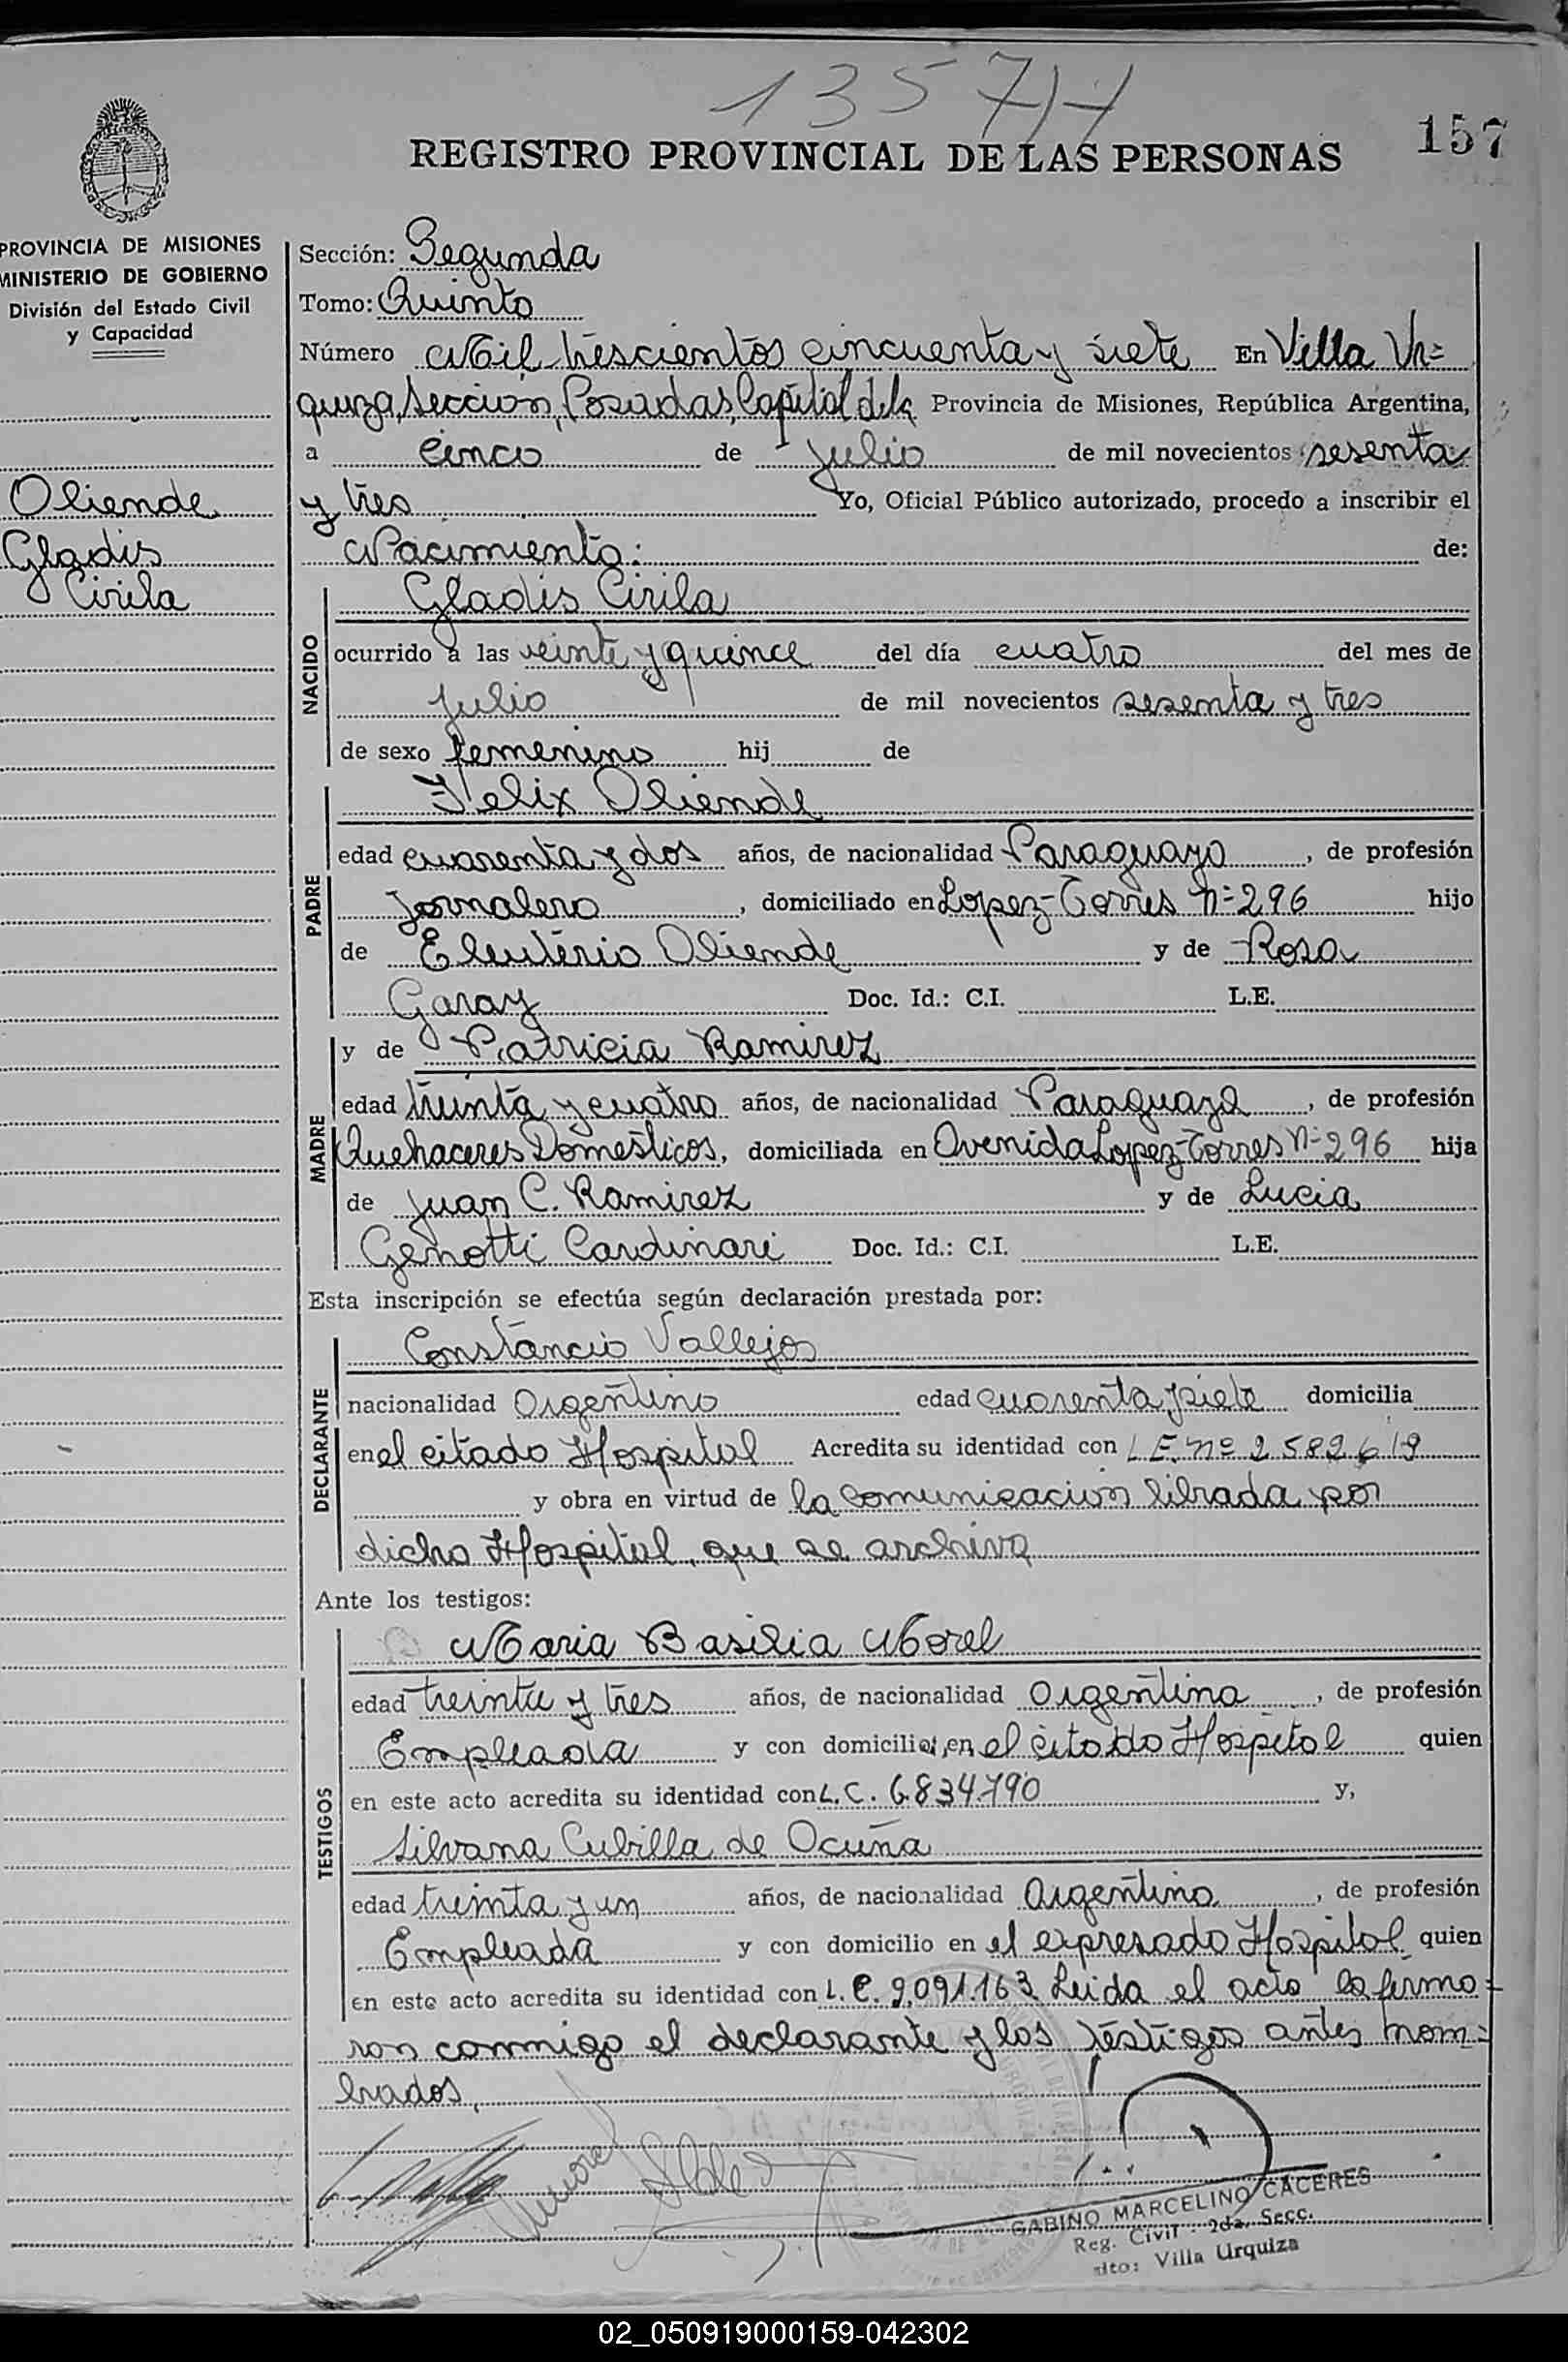 1357
157
REGISTRO PROVINCIAL DE LAS PERSONAS
PROVINCIA DE MISIONES
MINISTERIO DE GOBIERNO
División del Estado Civil
y Capacidad
Oliende
Gladis
Cirila
Sección: Segunda
Tomo: Quinto
Número Mil trescientos cincuenta y siete En Villa Ur=
quiza, Seccion, Posadas, Capital de la Provincia de Misiones, República Argentina,
a cinco de Julio de mil novecientos sesenta
y tres Yo, Oficial Público autorizado, procedo a inscribir el
Nacimiento: de:
NACIDO
Gladis Cirila
ocurrido a las veinte y quince del día cuatro del mes de
Julio de mil novecientos sesenta y tres
de sexo femenino hij de
PADRE
Felix Oliende
edad cuarenta y dos años, de nacionalidad Paraguaya, de profesión
Jornalero, domiciliado en Lopez-Torres Nº 296 hijo
de Eleuterio Oliende y de Rosa
Garay Doc. Id.: C.I. L.E.
MADRE
y de Patricia Ramirez
edad treinta y cuatro años, de nacionalidad Paraguaya, de profesión
Quehaceres Domesticos, domiciliada en Avenida Lopez-Torres Nº 296 hija
de Juan C. Ramirez y de Lucia
Genotti Cardinari Doc. Id.: C.I. L.E.
Esta inscripción se efectúa según declaración prestada por:
DECLARANTE
Constancio Vallejos
nacionalidad Argentino edad cuarenta y siete domicilia
en el citado Hospital Acredita su identidad con L.E. nº 2582619
y obra en virtud de la comunicacion librada por
dicho Hospital, que se archiva
Ante los testigos:
TESTIGOS
Maria Basilia Morel
edad treinta y tres años, de nacionalidad Argentina, de profesión
Empleada y con domicilio en el citado Hospital quien
en este acto acredita su identidad con L.C. 6.834.790 y,
Silvana Cubilla de Acuña
edad treinta y un años, de nacionalidad Argentina, de profesión
Empleada y con domicilio en el expresado Hospital quien
en este acto acredita su identidad con L.C. 9.091.163 Leida el acta la firma=
ron conmigo el declarante y los testigos antes nom=
brados,
GABINO MARCELINO CACERES
Reg. Civil - 2da. Secc.
Villa Urquiza
02_050919000159-042302